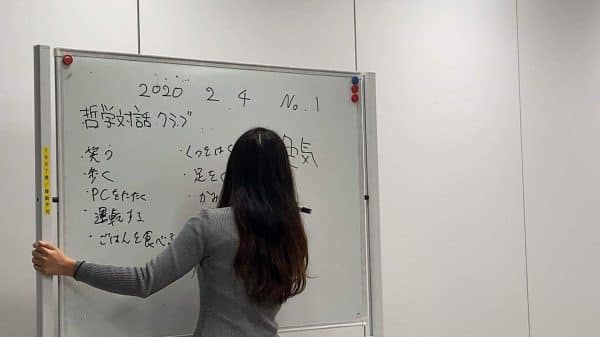 2020 2 4 No.1
哲学対話クラブ
・笑う
・歩く
・PCをたたく
・運転する
・ごはんを食べる
・くつをはく
・足を
・かみ
色気